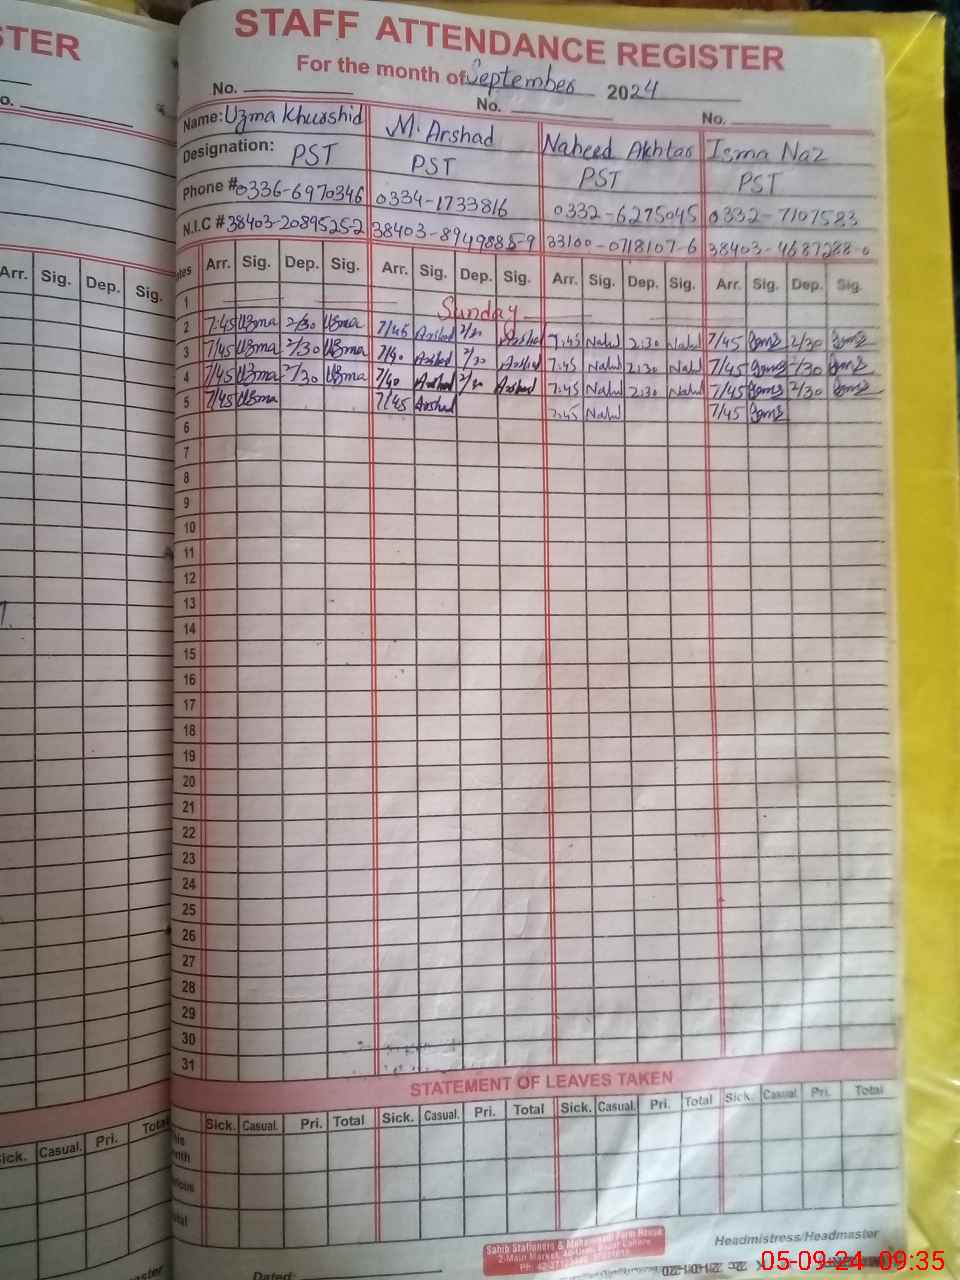 STER
STAFF ATTENDANCE REGISTER
For the month of September 2024
No. No. No.
Name: Uzma Khurshid M. Arshad Naheed Akhtar Isma Naz
Designation: PST PST PST PST
Phone # 0336-6970346 0334-1733816 0332-6275045 0332-7107583
N.I.C # 38403-2089525-2 38403-8949885-9 33100-0718107-6 38403-4687288-0
Arr. Sig. Dep. Sig. Arr. Sig. Dep. Sig. Arr. Sig. Dep. Sig. Arr. Sig. Dep. Sig.
Arr. Sig. Dep. Sig.
1 Sunday
2 7:45 Uzma 2/30 Uzma 7/45 Arshad 2/30 Arshad 7:45 Nahd 2:30 Nahd 7/45 Isma 2/30 Isma
3 7/45 Uzma 2/30 Uzma 7/40 Arshad 2/30 Arshad 7:45 Nahd 2:30 Nahd 7/45 Isma 2/30 Isma
4 7/45 Uzma 2/30 Uzma 7/40 Arshad 2/30 Arshad 7:45 Nahd 2:30 Nahd 7/45 Isma 2/30 Isma
5 7/45 Uzma 7/45 Arshad 7:45 Nahd 7/45 Isma
6
7
8
9
10
11
12
13
14
15
16
17
18
19
20
21
22
23
24
25
26
27
28
29
30
31
STATEMENT OF LEAVES TAKEN
Sick. Casual. Pri. Total Sick. Casual. Pri. Total Sick. Casual. Pri. Total Sick. Casual. Pri. Total
Casual. Pri. Total
Headmistress/Headmaster
Sahib Stationers & Form House
2-Main Market,
Dated
05-09-24 09:35